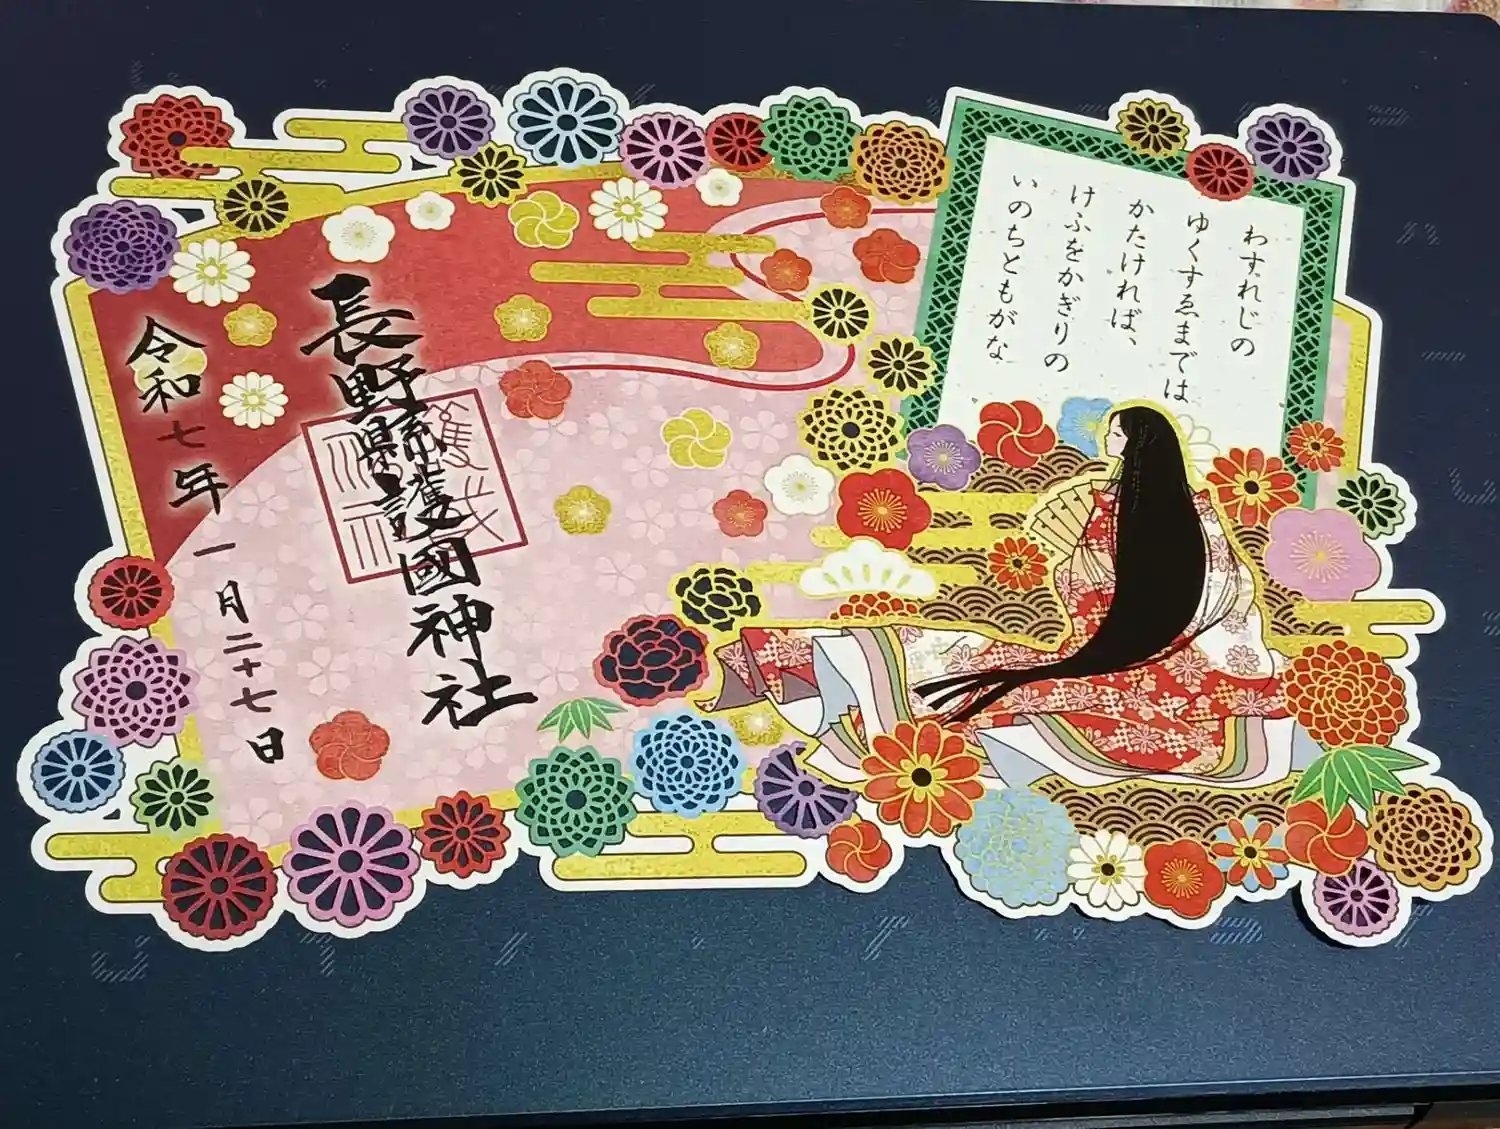 わすれじの
ゆくすゑまでは
かたければ、
けふをかぎりの
いのちともがな
長野縣護國神社
令和七年
一月二十七日